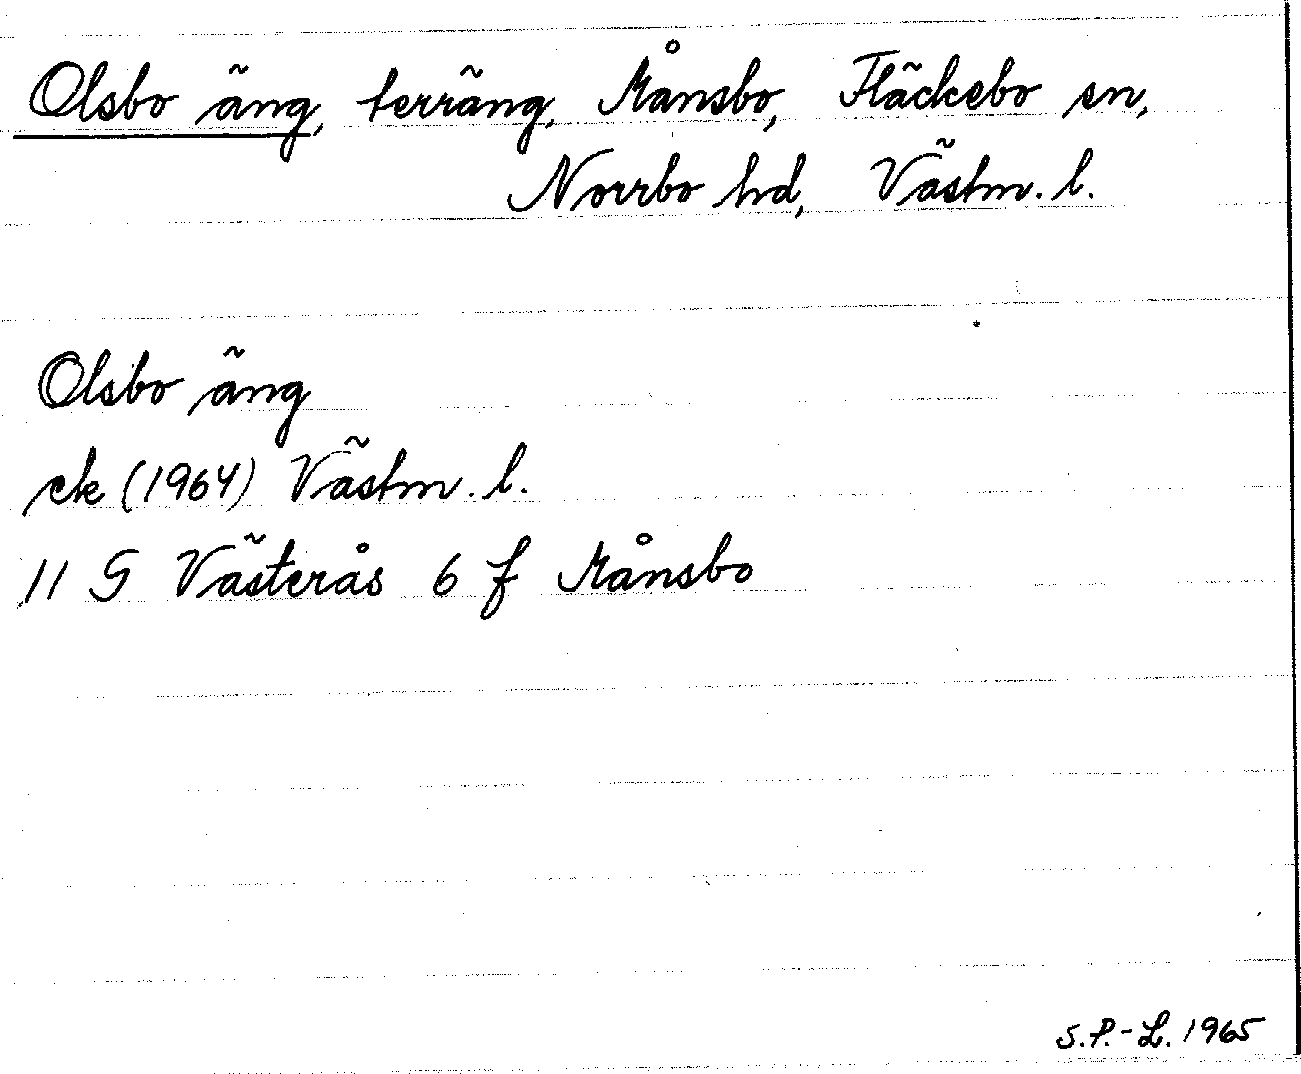 Olsbo äng, terräng, Månsbo, Fläckebo sn,
Norrbo hd, Västm. l.
Olsbo äng
ek (1964) Västm. l.
11 G Västerås 6 f Månsbo
S.P.-L. 1965